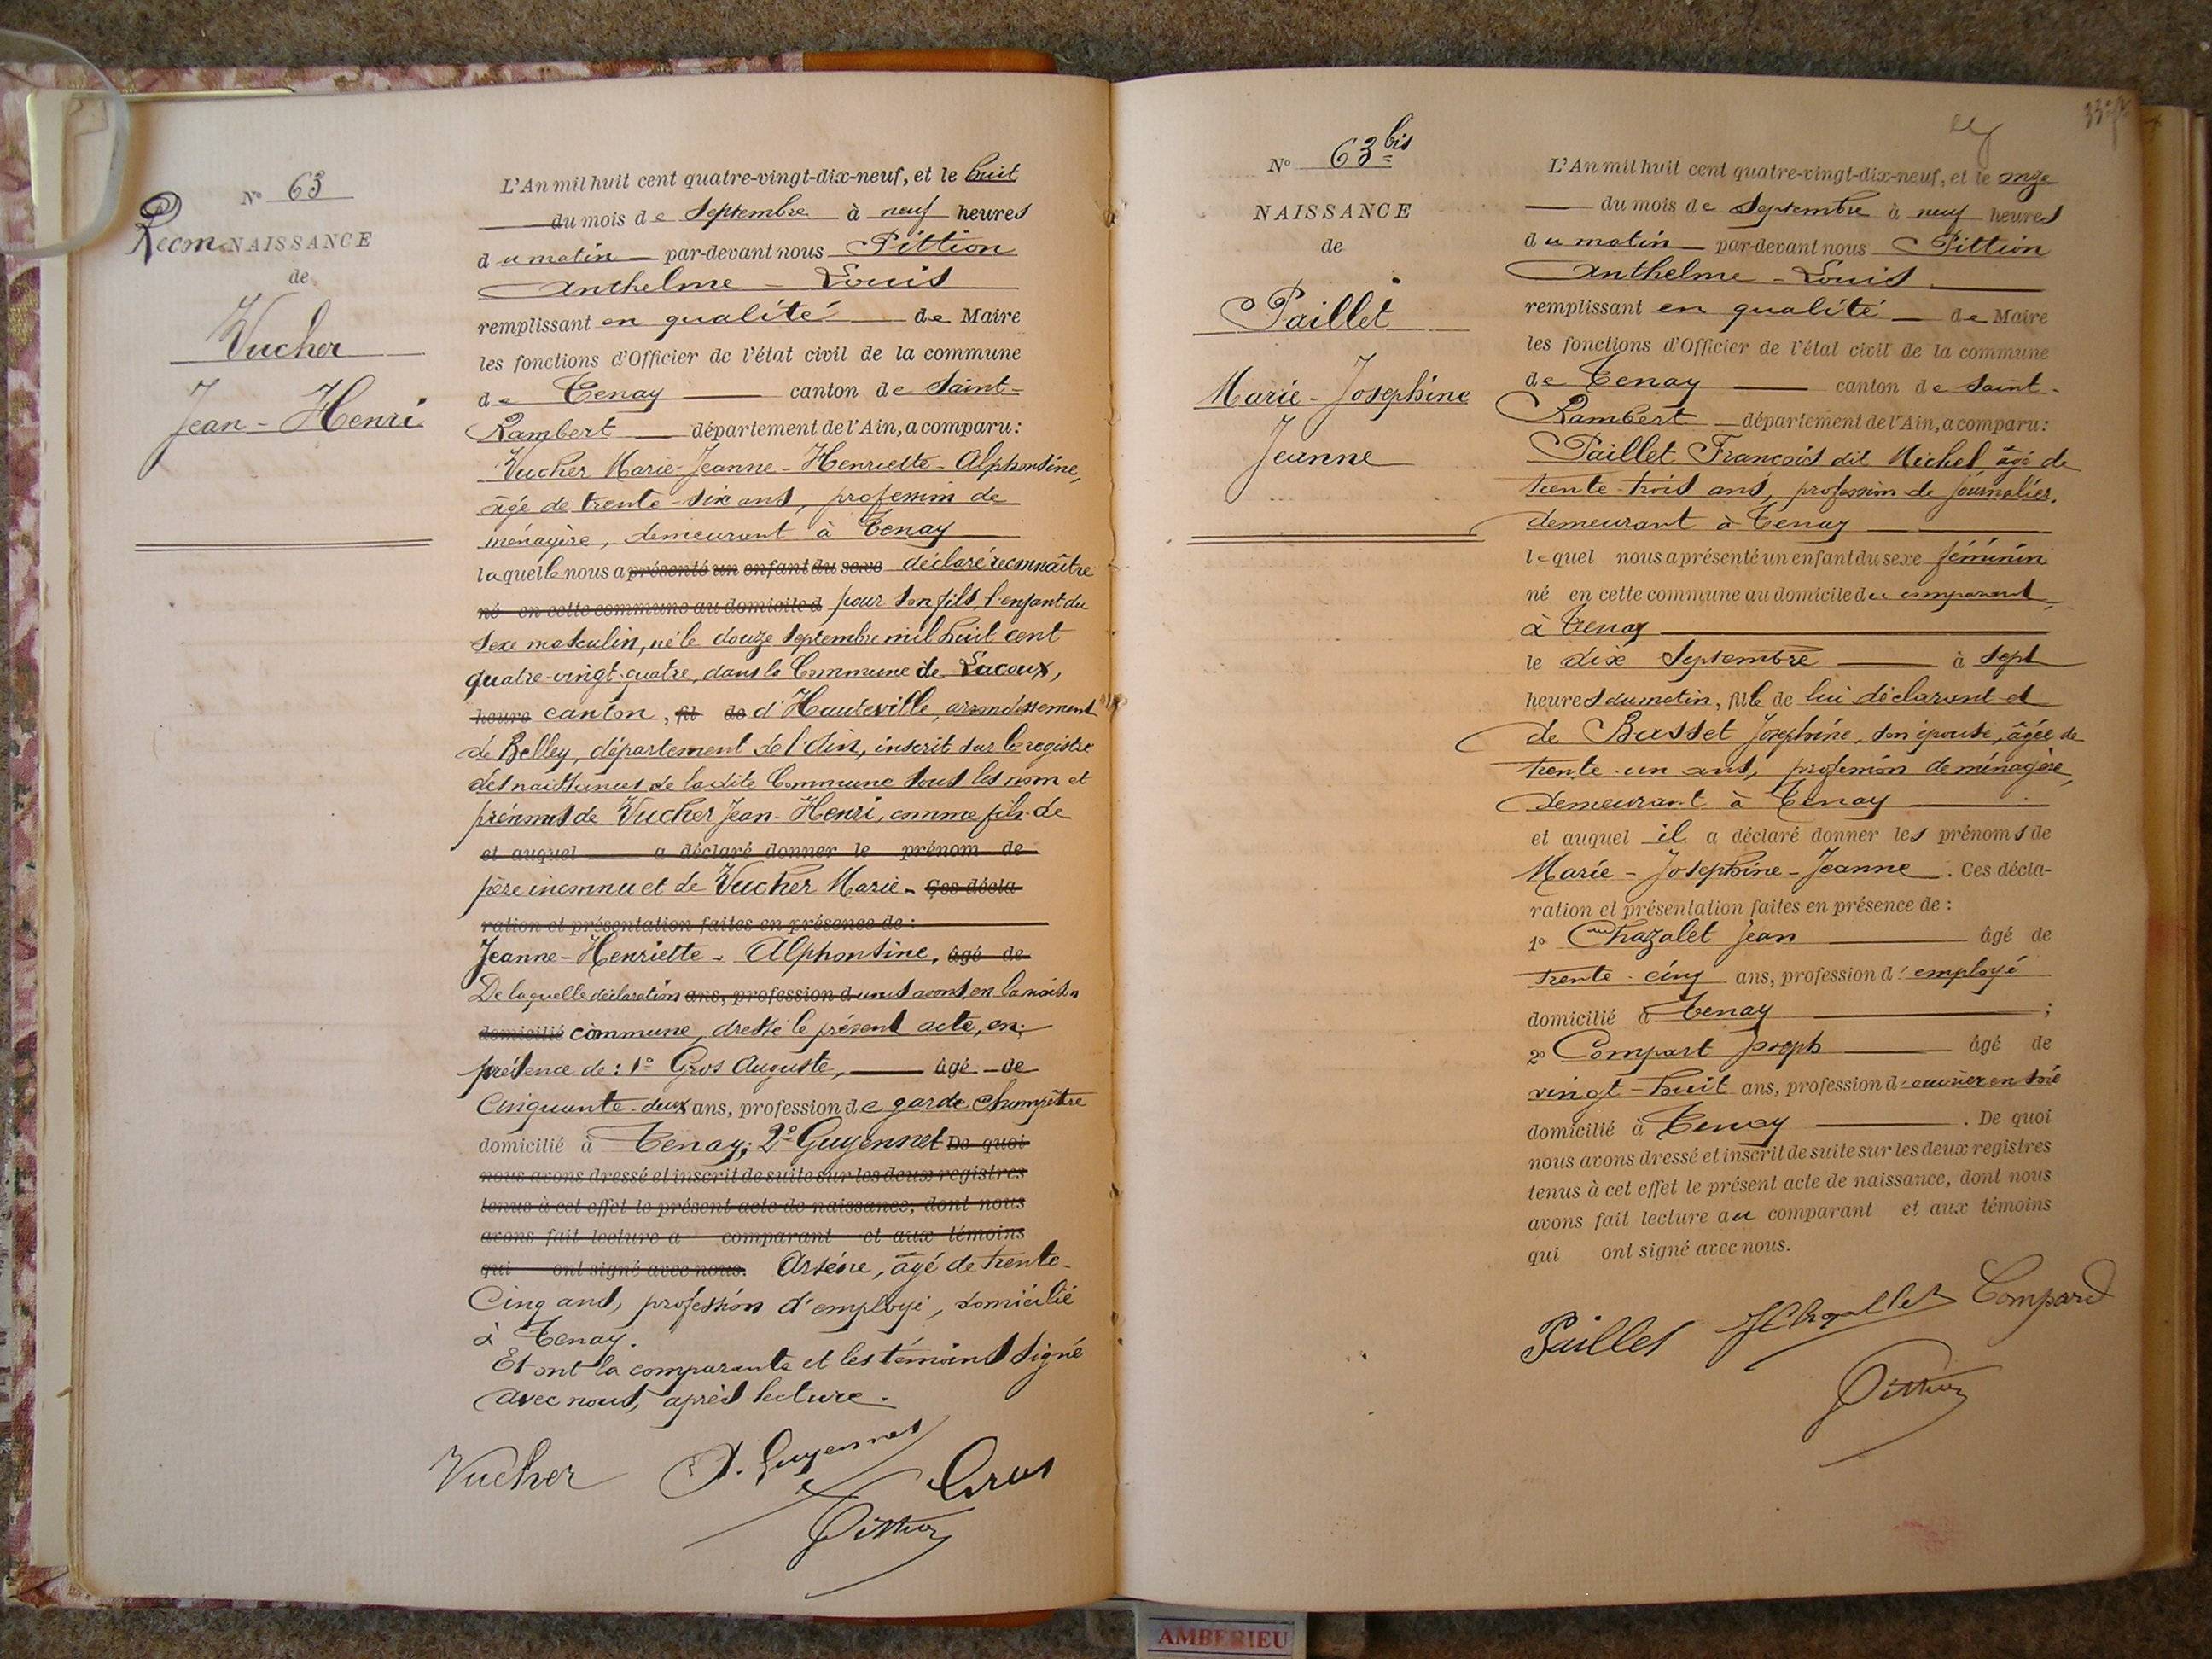 N° 63
Recon NAISSANCE
de
Vucher
Jean-Henri
L'An mil huit cent quatre-vingt-dix-neuf, et le huit
du mois de Septembre à neuf heures
du matin par-devant nous Pittion
Anthelme - Louis
remplissant en qualité de Maire
les fonctions d'Officier de l'état civil de la commune
de Tenay canton de Saint-
Rambert département de l'Ain, a comparu:
Vucher Marie-Jeanne-Henriette-Alphonsine,
âgé de trente-six ans, profession de
ménagère, demeurant à Tenay
laquelle nous a présenté un enfant du sexe déclaré reconnaître
né en cette commune au domicile d pour son fils, l'enfant du
sexe masculin, né le douze septembre mil huit cent
quatre-vingt-quatre, dans la Commune de Lacoux,
heure canton, fil de d'Hauteville, arrondissement
de Belley, département de l'Ain, inscrit sur le registre
des naissances de ladite Commune sous les nom et
prénoms de Vucher Jean-Henri, comme fils de
et auquel a déclaré donner le prénom de
père inconnu et de Vucher Marie- Ces décla-
ration et présentation faites en présence de:
Jeanne-Henriette-Alphonsine, âgé de
De laquelle déclaration ans, profession d nous avons, en la maison
domicilié commune, dressé le présent acte, en
présence de: 1° Gros Auguste, âgé de
Cinquante-deux ans, profession de garde champêtre
domicilié à Tenay; 2° Guyennet De quoi
nous avons dressé et inscrit de suite sur les deux registres
tenus à cet effet le présent acte de naissance, dont nous
avons fait lecture a comparant et aux témoins
qui ont signé avec nous. Arsène, âgé de trente-
Cinq ans, profession d'employé, domicilié
à Tenay.
Et ont la comparante et les témoins signé
avec nous, après lecture.
Vucher A. Guyennet Gros
Pittion
N° 63 bis
NAISSANCE
de
Paillet
Marie-Josephine
Jeanne
L'An mil huit cent quatre-vingt-dix-neuf, et le onze
du mois de Septembre à neuf heures
du matin par-devant nous Pittion
Anthelme-Louis
remplissant en qualité de Maire
les fonctions d'Officier de l'état civil de la commune
de Tenay canton de Saint-
Rambert département de l'Ain, a comparu:
Paillet François dit Michel, âgé de
trente-trois ans, profession de journalier,
demeurant à Tenay
lequel nous a présenté un enfant du sexe féminin
né en cette commune au domicile du comparant,
à Tenay
le dix Septembre à sept
heures du matin, fille de lui déclarant et
de Busset Joséphine, son épouse, âgée de
trente-un ans, profession de ménagère,
demeurant à Tenay
et auquel il a déclaré donner les prénoms de
Marie-Josephine-Jeanne. Ces décla-
ration et présentation faites en présence de:
1° Chazalet Jean âgé de
trente-cinq ans, profession d'employé
domicilié à Tenay ;
2° Compart Joseph âgé de
vingt-huit ans, profession d'ouvrier en soie
domicilié à Tenay . De quoi
nous avons dressé et inscrit de suite sur les deux registres
tenus à cet effet le présent acte de naissance, dont nous
avons fait lecture au comparant et aux témoins
qui ont signé avec nous.
Paillet Compard
Pittion
AMBERIEU